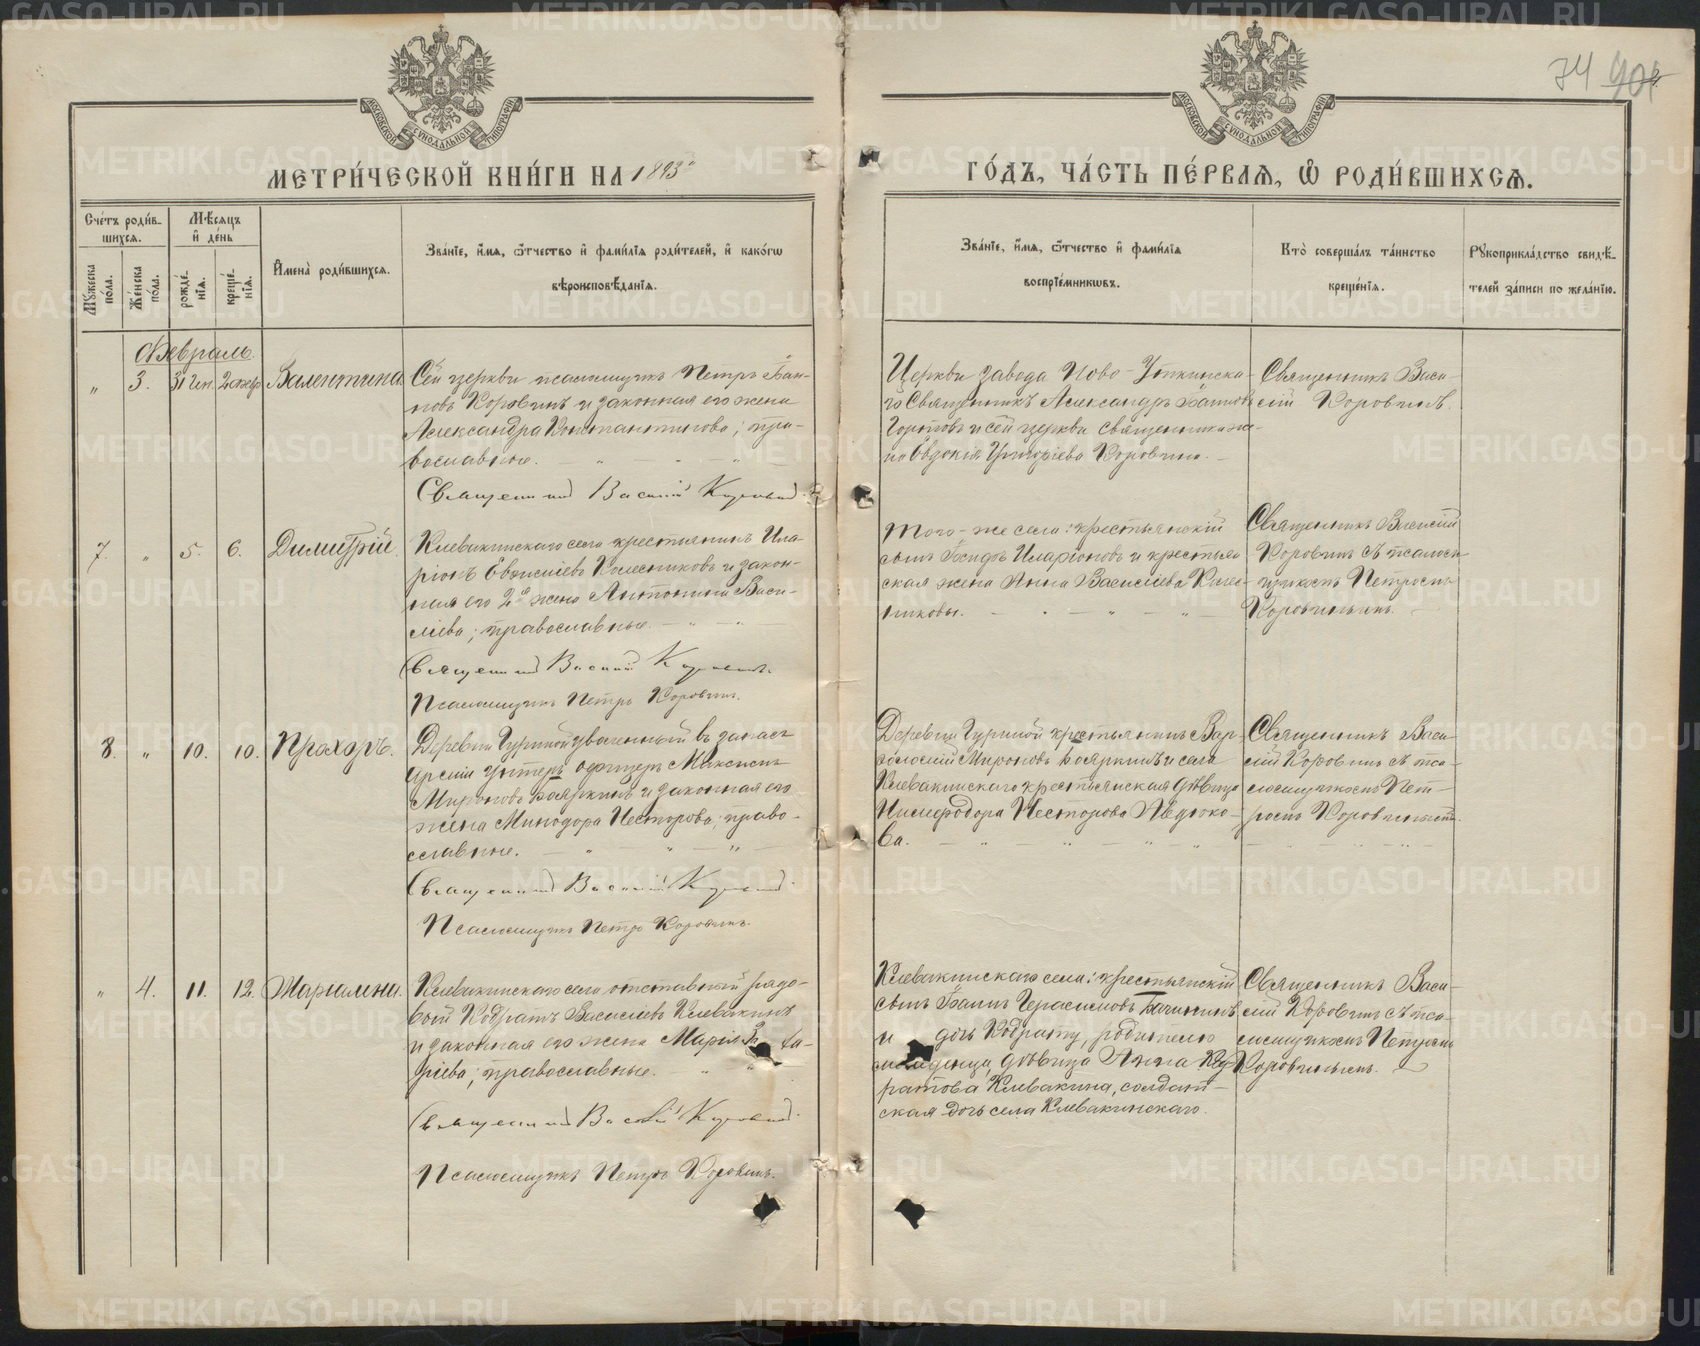 74
МЕТРИ́ЧЕСКОЙ КНИ́ГИ НА 1893й
ГО́ДЪ, ЧА́СТЬ ПЕ́РВАЯ, Ѡ РОДИ́ВШИХСЯ.
Сче́тъ роди́в-
шихся.
Мѣ́сяцъ
и де́нь
Мꙋ́жеска
по́ла.
Же́нска
по́ла.
рожде́-
нїя.
креще́-
нїя.
И҆мена̀ роди́вшихся.
Зва́нїе, и҆́мя, ѻ҆́тчество и҆ фами́лїя роди́телей, и҆ како́гѡ
вѣроисповѣ́данїя.
Зва́нїе, и҆́мя, ѻ҆́тчество и҆ фами́лїя
воспрїе́мникѡвъ.
Кто̀ соверша́лъ та́инство
креще́нїя.
Рꙋкоприкла́дство свидѣ́-
телей за́писи по жела́нїю.
Февраль.
" 3. 31 Ген. 2 февр Валентина
Сей церкви псаломщикъ Петръ Іоан-
новъ Коровинъ и законная его жена
Александра Константинова; пра-
вославные.
Священник Василій Коровин.
Церкви завода Ново-Уткинска-
го Священникъ Александръ Іоанновъ
и сей церкви священника же-
на Евдокія Григоріева Коровина.
Священникъ Васи-
лій Коровинъ.
7. " 5. 6. Димитрій.
Клевакинскаго села крестьянинъ Ила-
ріонъ Колесниковъ и закон-
ная его 2я жена Антонина Васи-
ліева; православные.
Священник Василій Коровинъ.
Псаломщикъ Петръ Коровинъ.
Того-же села: крестьянскій
сынъ Іосифъ Иларіоновъ и крестьян-
ская жена Анна Василіева Колес-
никовы.
Священникъ Василій
Коровинъ съ псалом-
щикомъ Петромъ
Коровинымъ.
8. " 10. 10. Прохоръ.
Деревни Гуриной уволенный въ запасъ
арміи унтеръ офицеръ Максимъ
Мироновъ Бояркинъ и законная его
жена Минодора Несторова; право-
славные.
Священник Василій Коровин.
Псаломщикъ Петръ Коровинъ.
Деревни Гуриной крестьянинъ Вар-
ѳоломій Мироновъ Бояркинъ и села
Клевакинскаго крестьянская дѣвица
Нимфодора Несторова Авдюко-
ва.
Священникъ Васи-
лій Коровинъ съ пса-
ломщикомъ Пет-
ромъ Коровинымъ.
" 4. 11. 12. Маріамна.
Клевакинскаго села отставной рядо-
вой Кодратъ Васильевъ Клевакинъ
и законная его жена Марія
ріева; православные.
Священник Василій Коровин.
Псаломщикъ Петръ Коровинъ.
Клевакинскаго села: крестьянскій
сынъ Іоаннъ Герасимовъ
и дочь Кодрату, родителю
младенца, дѣвица Анна Код-
ратова Клевакина, солдат-
ская дочь села Клевакинскаго.
Священникъ Васи-
лій Коровинъ съ пса-
ломщикомъ Петромъ
Коровинымъ.
METRIKI.GASO-URAL.RU